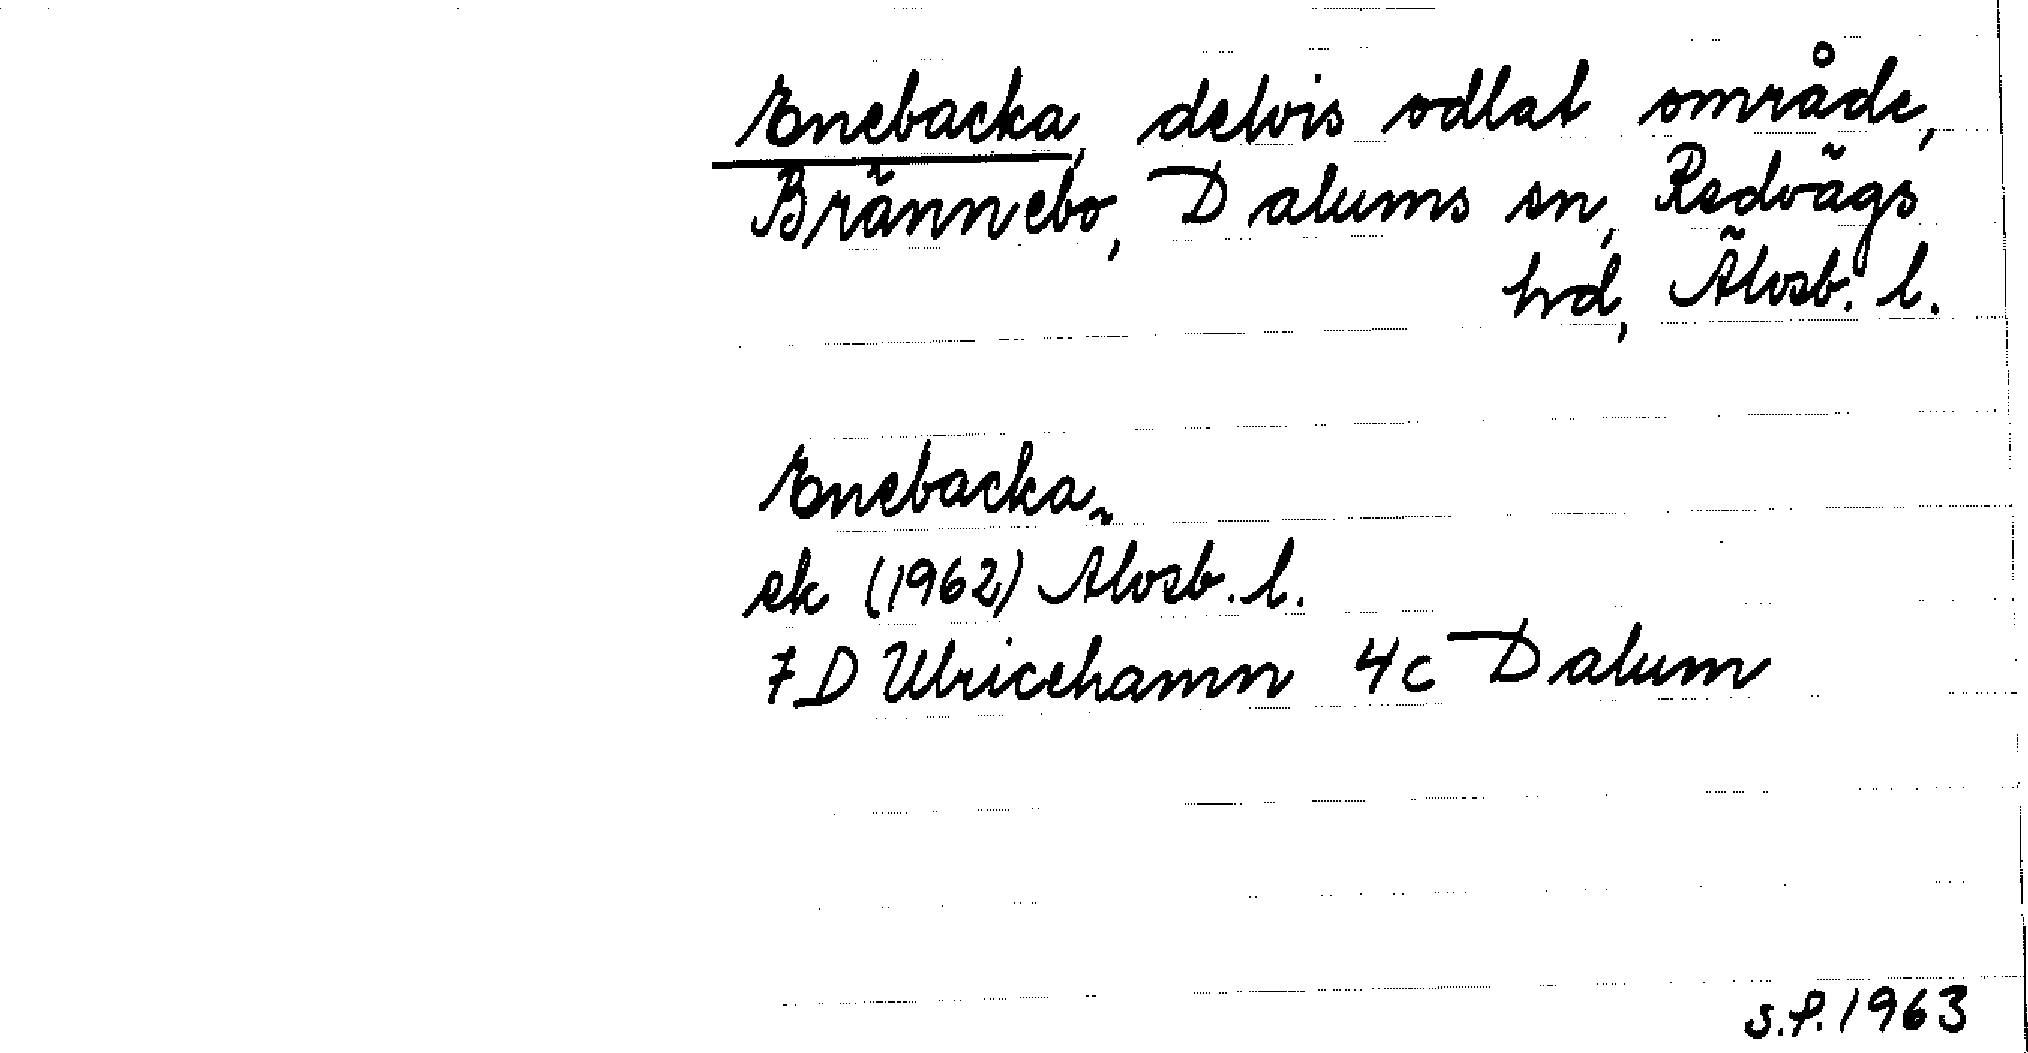 Enebacka, delvis odlat område,
Brännebo, Dalums sn, Redvägs
hd, Älvsb. l.
Enebacka
ek (1962) Älvsb. l.
7D Ulricehamn 4c Dalum
S.P. 1963